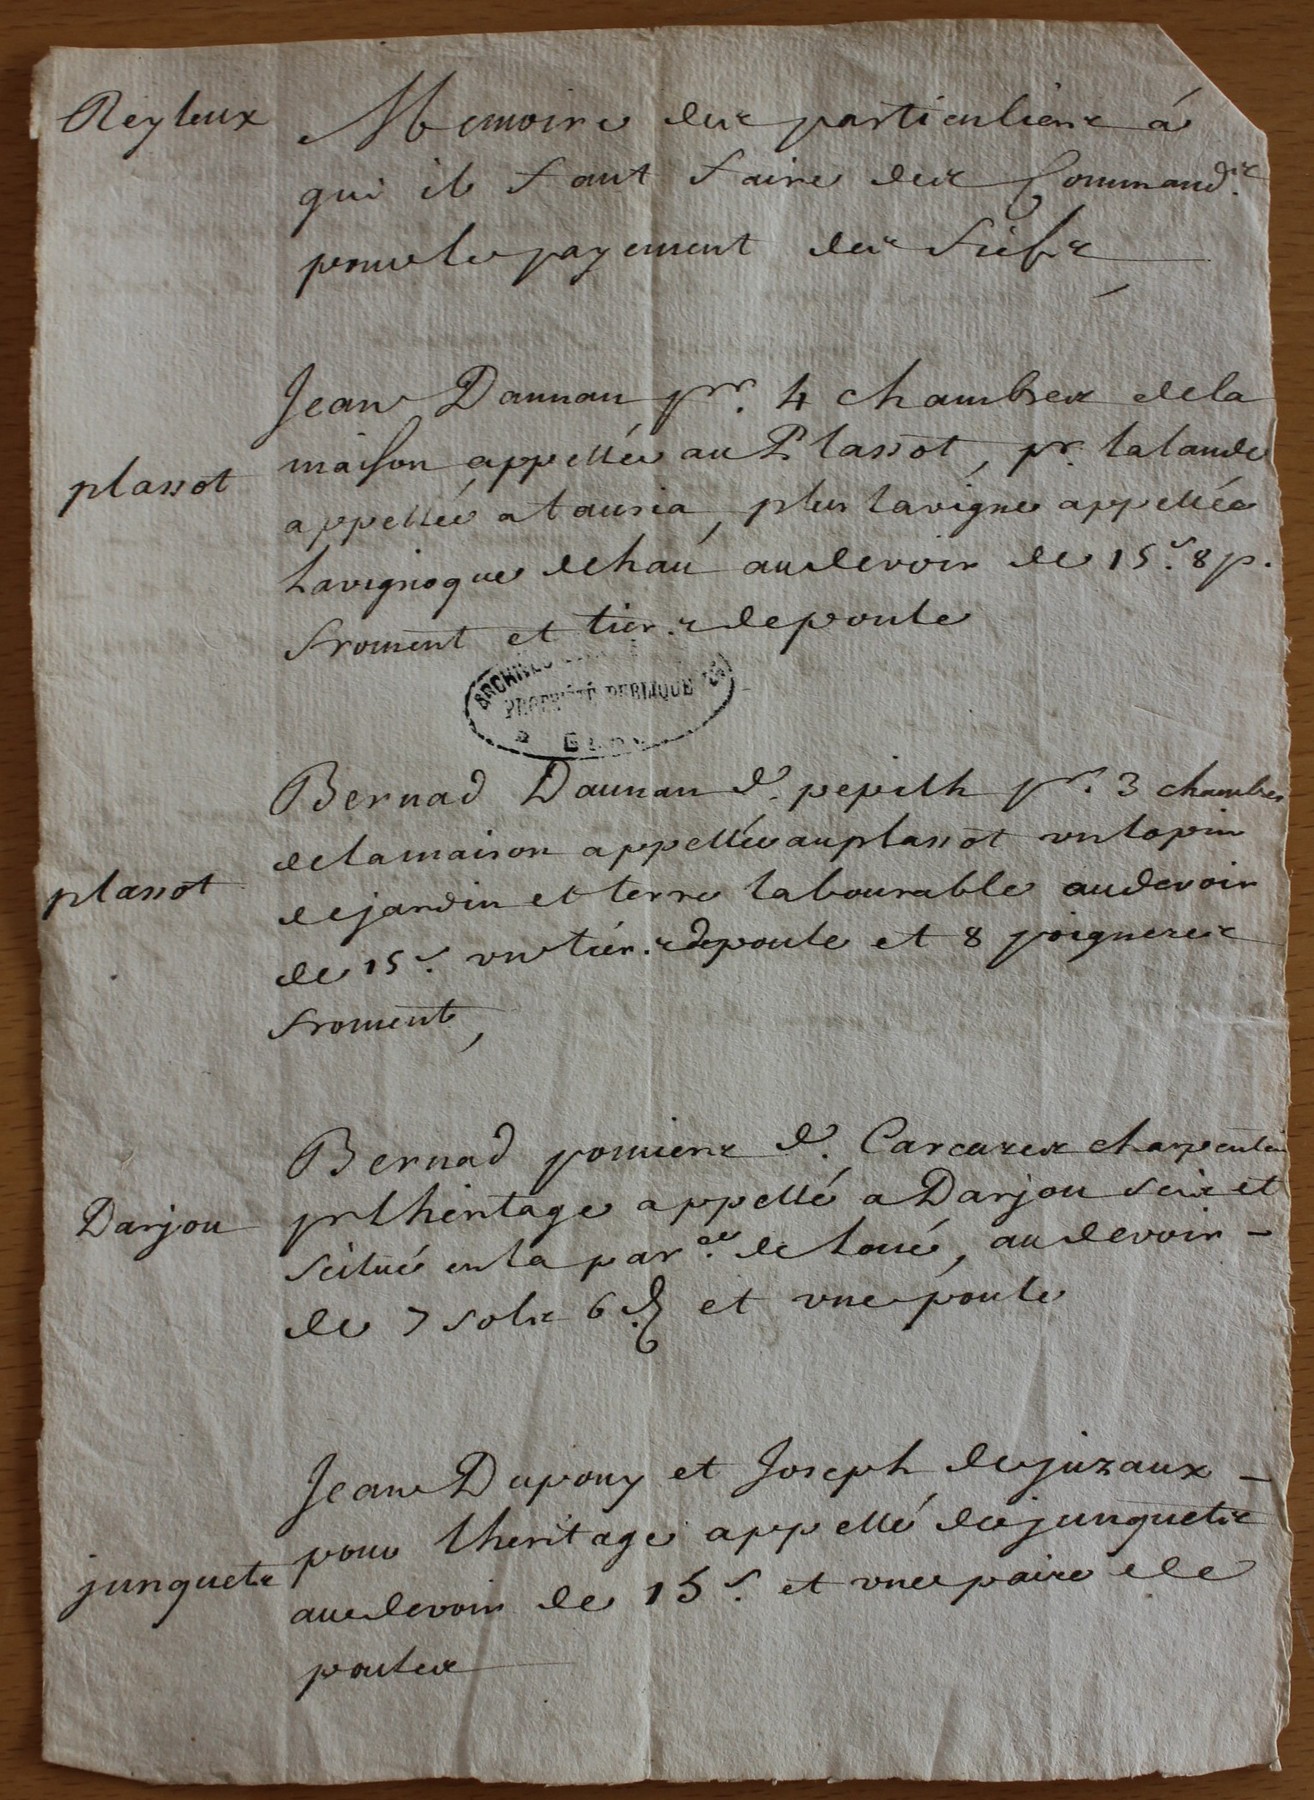 Reyleux
Memoire des particuliers á
qui il faut faire des Command.ts
pour le payement des fiefs
Jean Daunan pr. 4 chambres de la
plassot
maison appellée au Plassot, pr. la lande
appellée a tauria, plus la vigne appellée
La vignoque dehaú au devoir de 15 s. 8 p.
froment et tiers de poule
ARCHIVES
PROPRIÉTÉ PUBLIQUE
Bernad Daunan d. pepilh pr. 3 chambres
de la maison appellée au plassot un lopin
plassot
de jardin et terre labourable au devoir
de 15 s. un tiers de poule et 8 poigneres
froment,
Bernad pomiers d. Carcazes charpentier
Darjou
pr lheritage appellé a Darjou sis et
scitué en la par.e de Loué, au devoir -
de 7 sols 6 d. et une poule
Jean Dupouy et Joseph dejuzaux -
pour lheritage appellé de junquets
junquets
au devoir de 15 s. et une paire de
poules